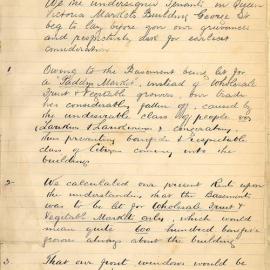 We the undersigned Tenants, in Queen
Victoria Markets Building George St
beg to lay before you our grievances
and respectively ask for earliest
consideration
1 Owing to the Basement being let for
a Paddys Market, instead of Wholesale
Fruit & Vegetable growers, our trade
has considerably fallen off, caused by
the undesirable class of people
Larrikins & Larrikinesses congregating
thus preventing families & respectable
class of Citizen coming into the
building.
2 We calculated our present Rent upon
the understanding that the Basement
was to be let for Wholesale Fruit &
Vegetable Market only, which would
mean quite 600 hundred
growers always about the building
3 That our front windows would be